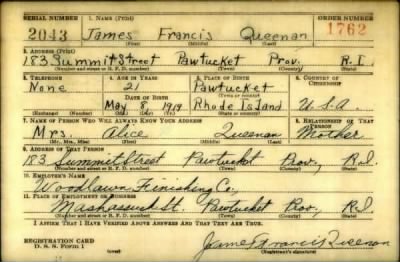 SERIAL NUMBER 1. NAME (Print) ORDER NUMBER
2043 James Francis Queenan 1762
(First) (Middle) (Last)
2. ADDRESS (Print)
183 Summit Street Pawtucket Prov. R.I.
(Number and street or R. F. D. number) (Town) (County) (State)
3. TELEPHONE 4. AGE IN YEARS 5. PLACE OF BIRTH 6. COUNTRY OF CITIZENSHIP
None 21 Pawtucket
DATE OF BIRTH (Town or county)
May 8, 1919 Rhode Island U.S.A
(Exchange) (Number) (Mo.) (Day) (Yr.) (State or country)
7. NAME OF PERSON WHO WILL ALWAYS KNOW YOUR ADDRESS 8. RELATIONSHIP OF THAT PERSON
Mrs. Alice Queenan Mother
(Mr., Mrs., Miss) (First) (Middle) (Last)
9. ADDRESS OF THAT PERSON
183 Summit Street Pawtucket Prov, R.I.
(Number and street or R. F. D. number) (Town) (County) (State)
10. EMPLOYER'S NAME
Woodlawn Finishing Co,
11. PLACE OF EMPLOYMENT OR BUSINESS
St. Pawtucket Prov, R.I.
(Number and street or R. F. D. number) (Town) (County) (State)
I AFFIRM THAT I HAVE VERIFIED ABOVE ANSWERS AND THAT THEY ARE TRUE.
REGISTRATION CARD
D. S. S. FORM 1 James Francis Queenan
(Registrant's signature)